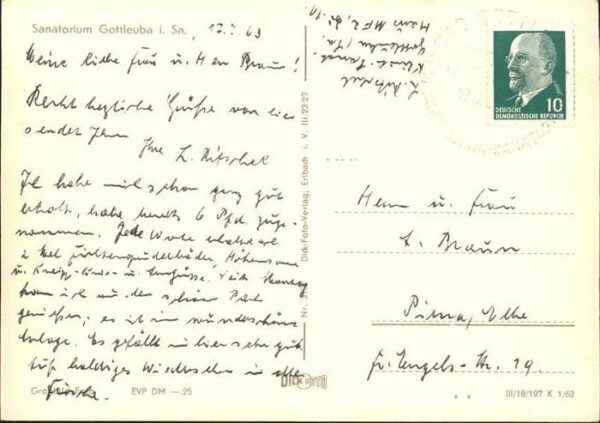 Sanatorium Gottleuba i. Sa.
63
Meine liebe Frau u. Herr Braun!
Recht herzliche Grüße von hier
sendet Ihnen
Ihre L. Ritschel
Ich habe mich schon ganz gut
erholt, habe bereits 6 Pfd. zuge-
nommen. Jede Woche
2 mal Fichtennadelbäder, Höhensonne
u. Kneipp- u. Seit Montag
kann ich nun den schönen Park
genießen; es ist eine wunderschöne
Anlage. Es gefällt mir hier sehr gut.
Auf baldiges Wiedersehen in alter
Frische.
EVP DM —.25
Dick-Foto-Verlag, Erlbach i. V. III/23/27
Nr.
Dick
L. Ritschel
Klinik-Sanat.
Gottleuba/Sa.
Haus
10
DEUTSCHE
DEMOKRATISCHE REPUBLIK
Herrn u. Frau
Braun
Pirna, Elbe
Fr. Engels-Str. 19.
III/18/197 K 1/63